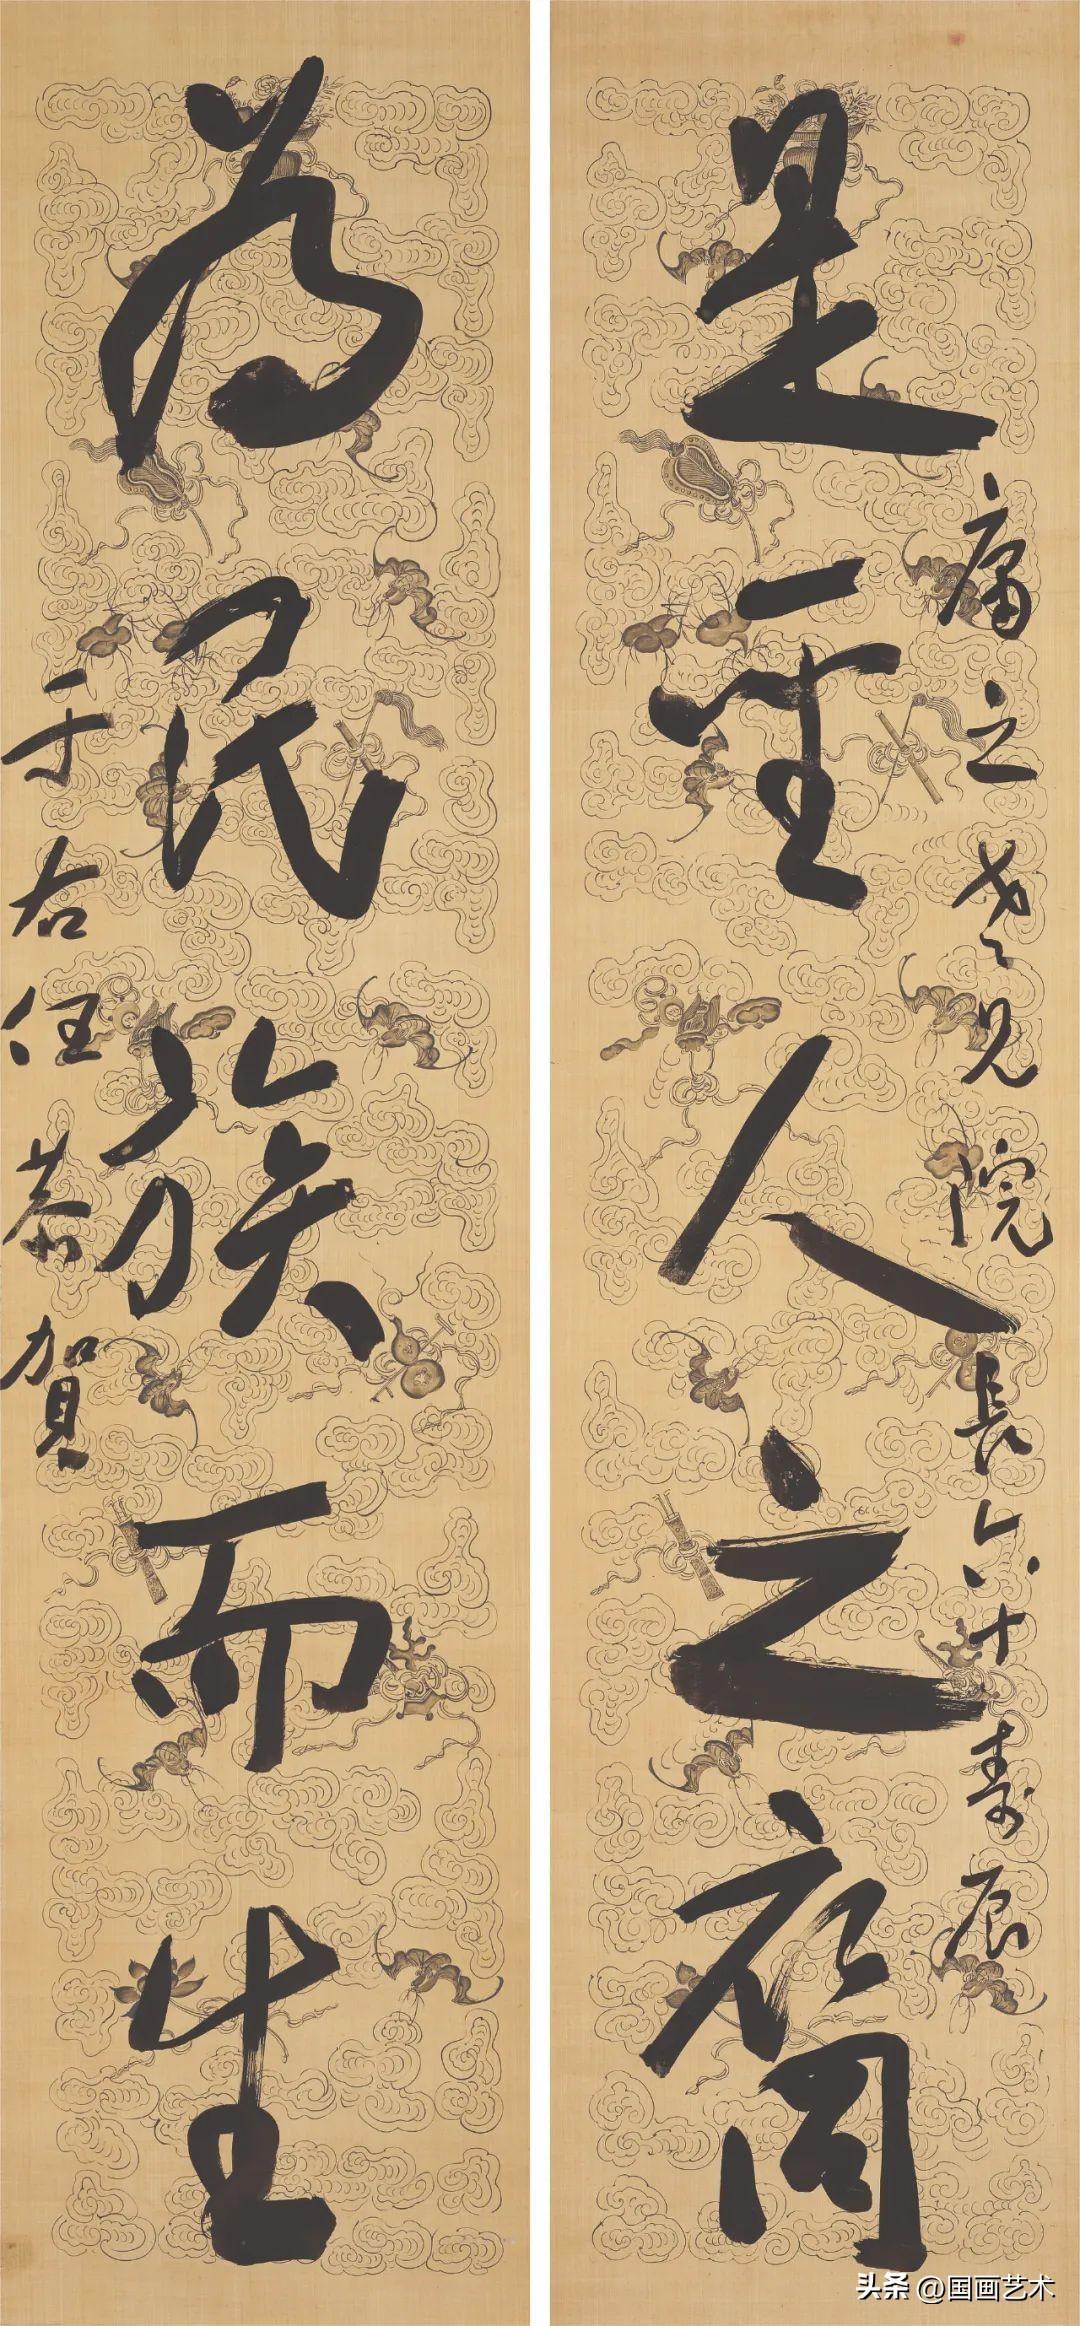 是聖人之裔
庸之老兄院長六十壽辰
為民族而生
于右任恭賀
头条 @国画艺术